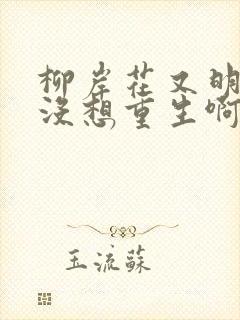 柳岸花又明
没想重生啊
玉流蘇